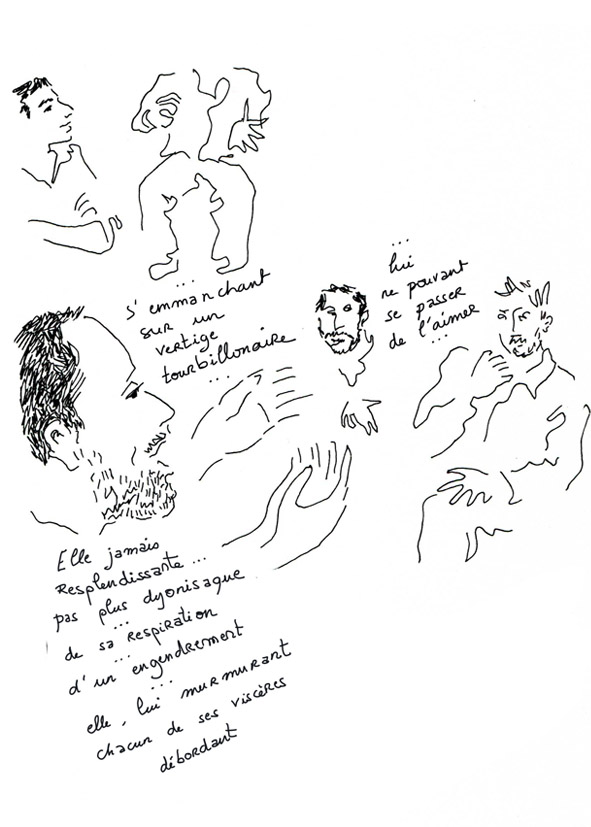 ...
s'emmanchant
sur un
vertige
tourbillonaire
...
...
lui
ne pouvant
se passer
de l'aimer
...
Elle jamais
resplendissante...
pas plus dyonisaque
...
de sa respiration
...
d'un engendrement
...
elle, lui murmurant
chacun de ses viscères
débordant